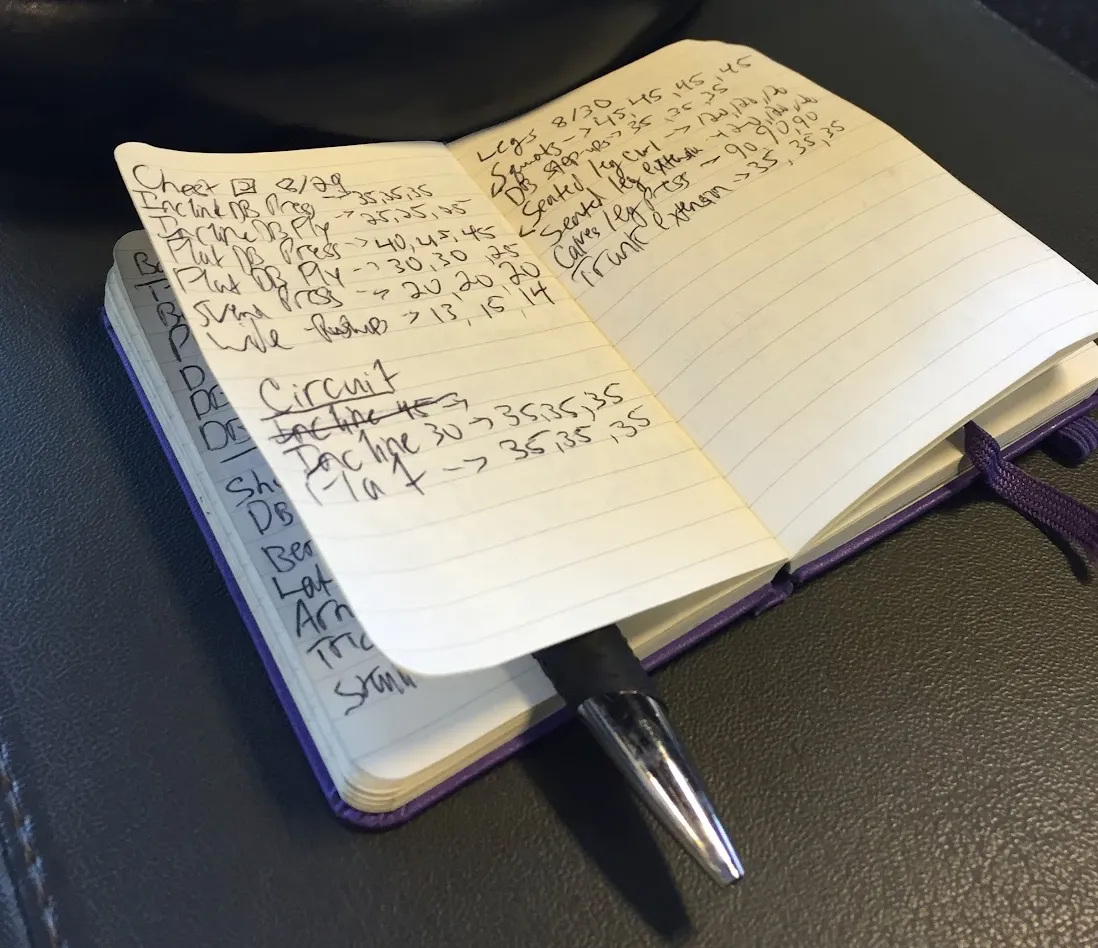 Chest 8/29
Incline DB Press -> 35,35,35
Incline DB Fly -> 25,25,25
Flat DB Press -> 40,45,45
Flat DB Fly -> 30,30,25
Svend Press -> 20,20,20
Wide Pushups -> 13,15,14
Circuit
Incline 45 ->
Incline 30 -> 35,35,35
Flat -> 35,35,35
Legs 8/30
Squats -> 45,45,45,45
DB step-ups -> 35,35,35
Seated leg curl -> 120,120,120
Seated leg extension -> 120,120,120
Calves leg press - 90,90,90
Trunk extension -> 35,35,35
DB
Lat